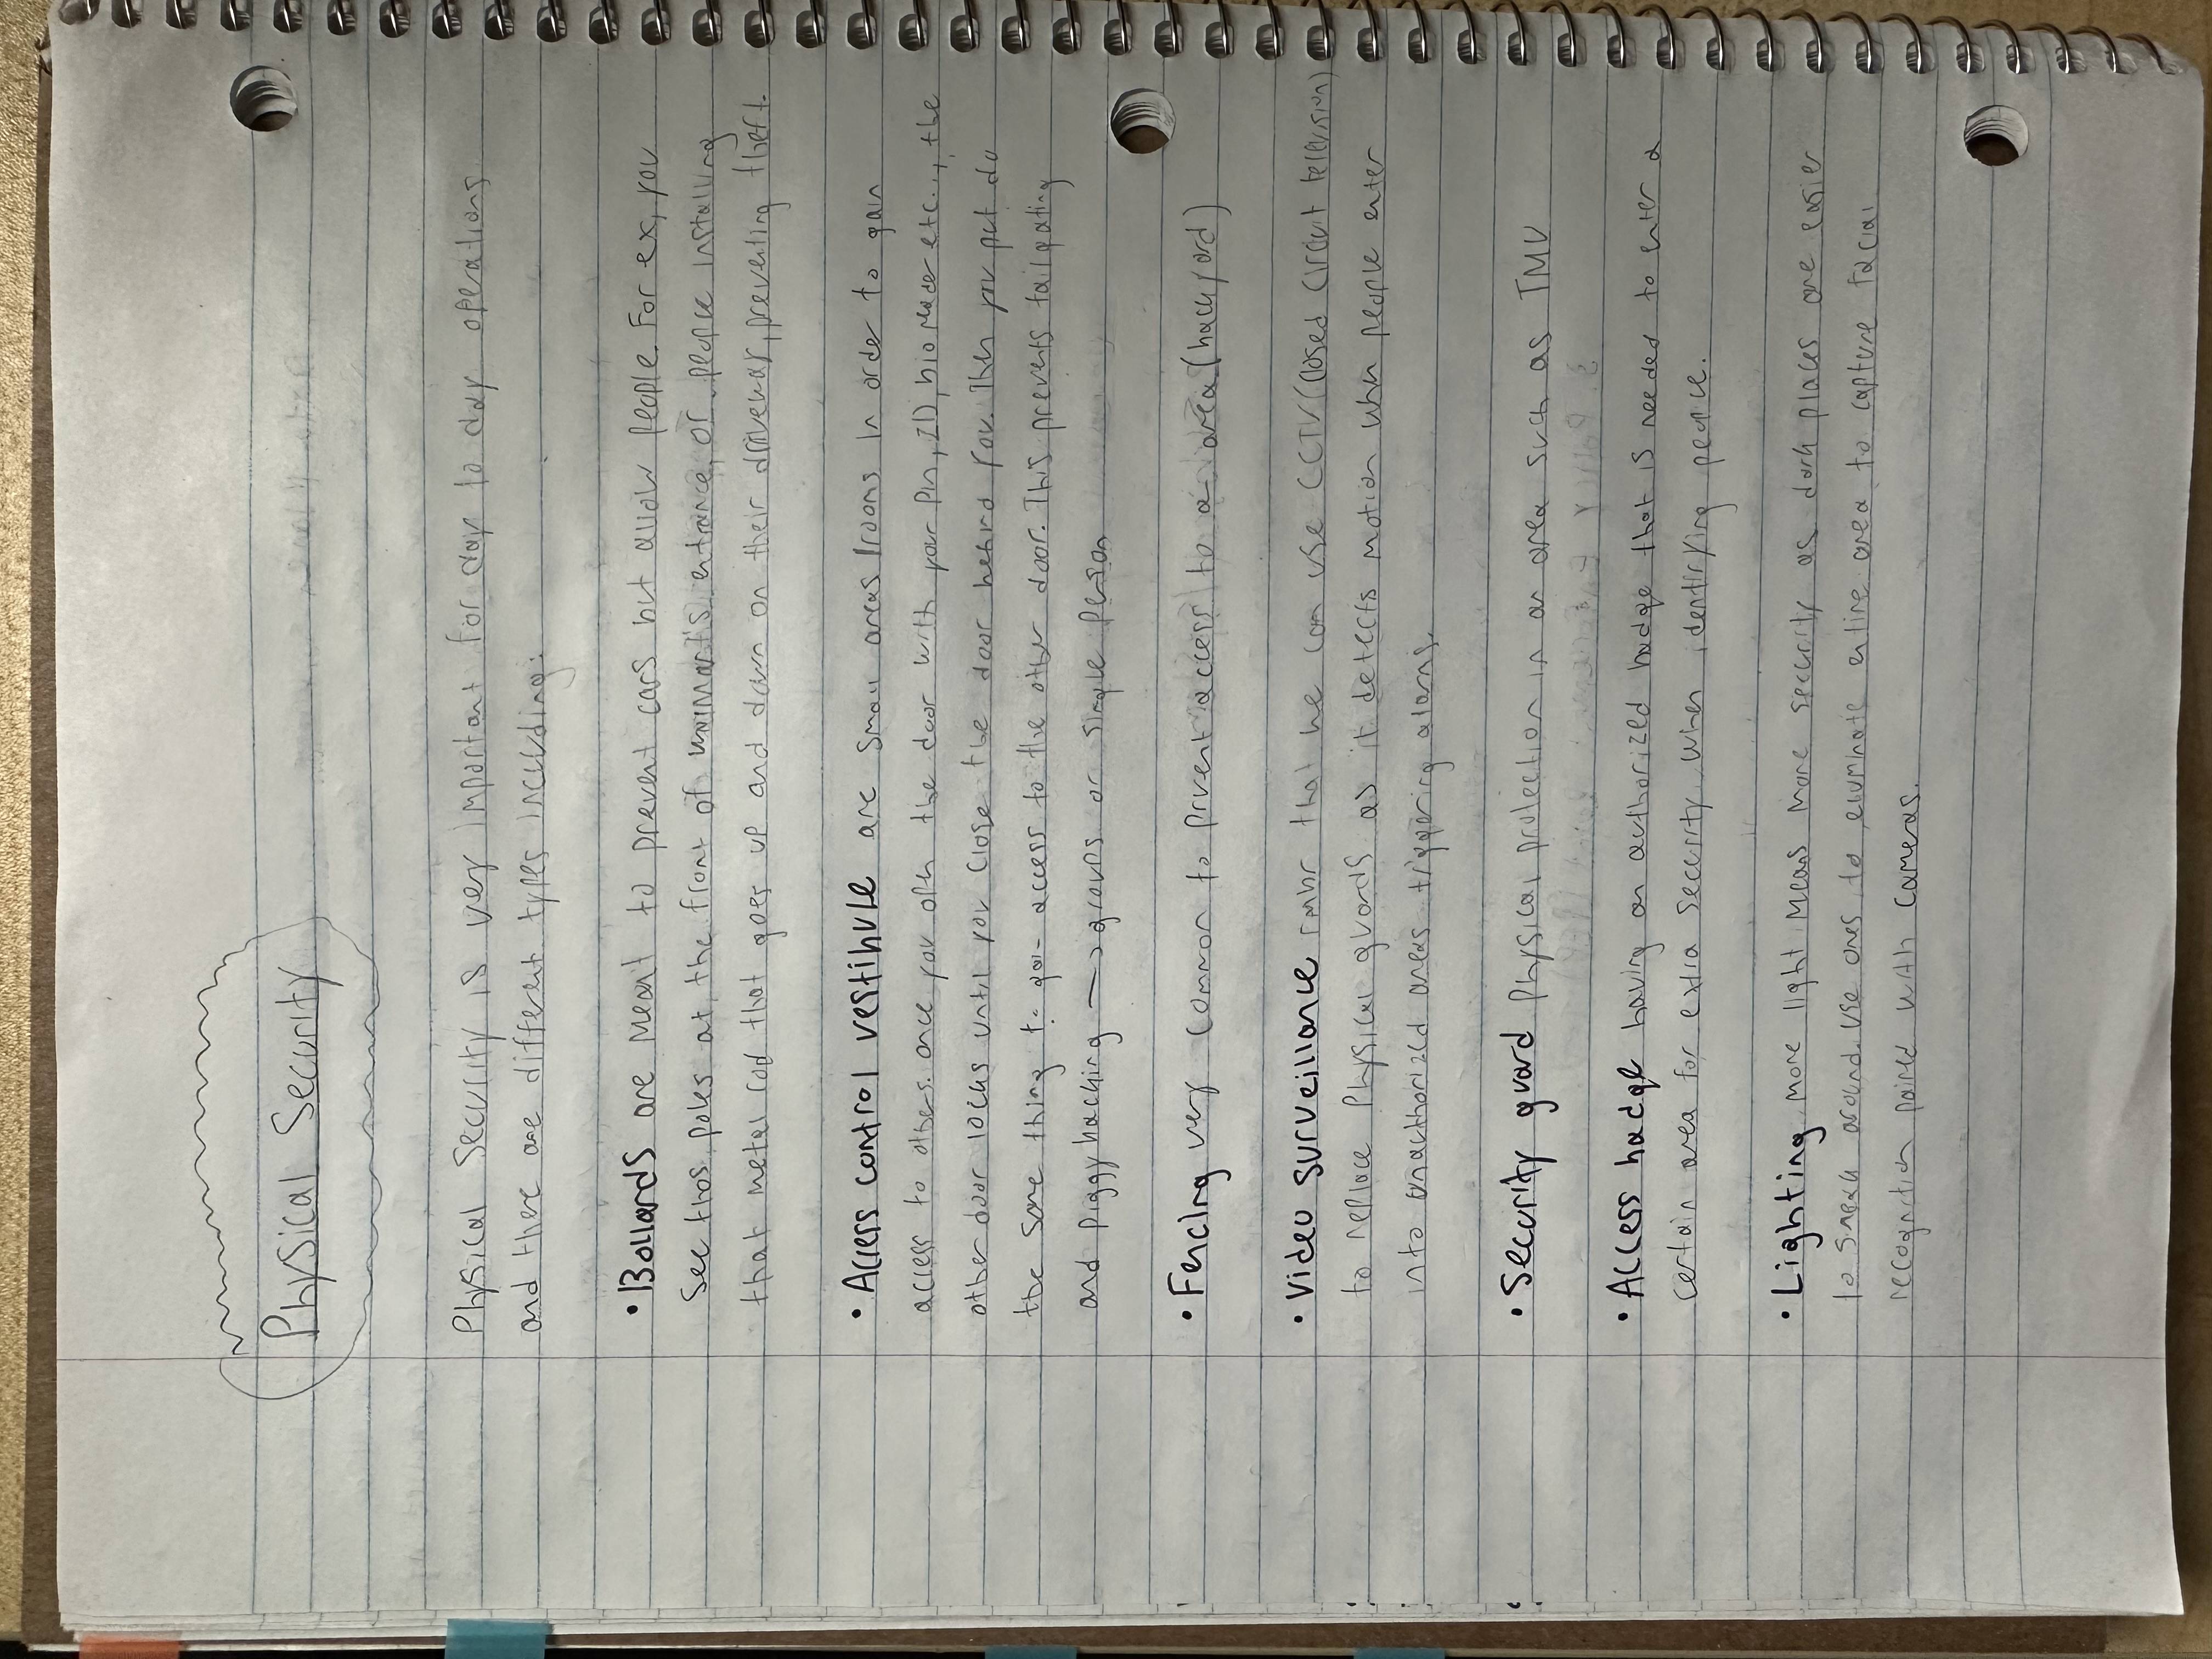 Physical Security
Physical Security is very important for day to day operations
and there are different types including:
• Bollards are meant to prevent cars but allow people. For ex, you
see thos poles at the front of walmart's entrance, or people installing
that metal rod that goes up and down on their driveway, preventing theft.
• Access control vestibule are small areas/rooms in order to gain
access to others. once you open the door with your Pin, ID, bio reader etc.., the
other door locks until you close the door behind you. Then you put do
the same thing to gain access to the other door. This prevents tailgating
and piggybacking → groups or single person
• Fencing very common to prvent access to a area (backyard)
• Video surveillance rmbr that we can use CCTV (Closed circuit television)
to replace Physical guards as it detects motion when people enter
into unauthorized areas triggering alarms.
• Security guard physical protection in an area such as TMU
• Access badge having an authorized badge that is needed to enter a
certain area for extra security when identifying people.
• Lighting more light means more security as dark places are easier
to sneak around. Use ones to eluminate entire area to capture facial
recognition paired with cameras.